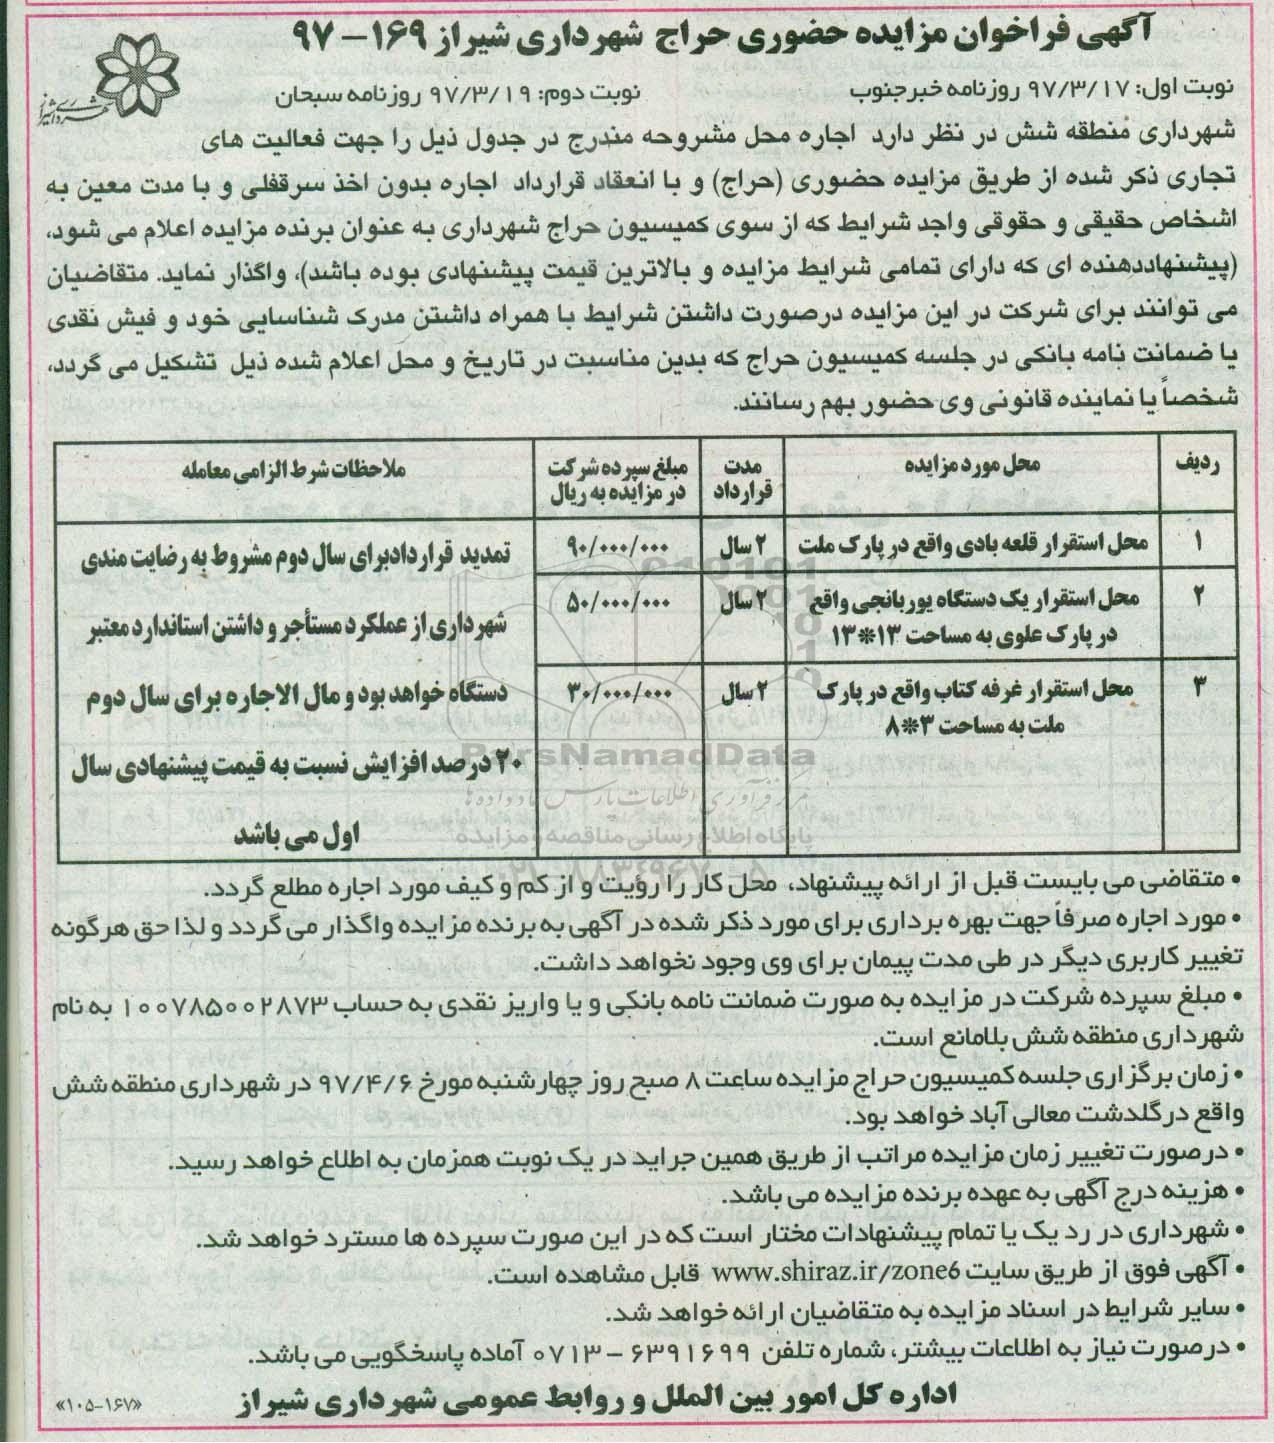 آگهی فراخوان مزایده حضوری حراج شهرداری شیراز ۱۶۹-۹۷
شهرداری شیراز
نوبت اول: ۹۷/۳/۱۷ روزنامه خبرجنوب
نوبت دوم: ۹۷/۳/۱۹ روزنامه سبحان
شهرداری منطقه شش در نظر دارد اجاره محل مشروحه مندرج در جدول ذیل را جهت فعالیت های
تجاری ذکر شده از طریق مزایده حضوری (حراج) و با انعقاد قرارداد اجاره بدون اخذ سرقفلی و با مدت معین به
اشخاص حقیقی و حقوقی واجد شرایط که از سوی کمیسیون حراج شهرداری به عنوان برنده مزایده اعلام می شود،
(پیشنهاددهنده ای که دارای تمامی شرایط مزایده و بالاترین قیمت پیشنهادی بوده باشد)، واگذار نماید. متقاضیان
می توانند برای شرکت در این مزایده درصورت داشتن شرایط با همراه داشتن مدرک شناسایی خود و فیش نقدی
یا ضمانت نامه بانکی در جلسه کمیسیون حراج که بدین مناسبت در تاریخ و محل اعلام شده ذیل تشکیل می گردد،
شخصاً یا نماینده قانونی وی حضور بهم رسانند.
ردیف
محل مورد مزایده
مدت
قرارداد
مبلغ سپرده شرکت
در مزایده به ریال
ملاحظات شرط الزامی معامله
۱
محل استقرار قلعه بادی واقع در پارک ملت
۲ سال
۹۰/۰۰۰/۰۰۰
۲
محل استقرار یک دستگاه یوربانجی واقع
در پارک علوی به مساحت ۱۳*۱۳
۲ سال
۵۰/۰۰۰/۰۰۰
۳
محل استقرار غرفه کتاب واقع در پارک
ملت به مساحت ۳*۸
۲ سال
۳۰/۰۰۰/۰۰۰
تمدید قراردادبرای سال دوم مشروط به رضایت مندی
شهرداری از عملکرد مستأجر و داشتن استاندارد معتبر
دستگاه خواهد بود و مال الاجاره برای سال دوم
۲۰ درصد افزایش نسبت به قیمت پیشنهادی سال
اول می باشد
ParsNamadData
مرکز فرآوری اطلاعات پارس نماد داده ها
پایگاه اطلاع رسانی مناقصه و مزایده
۰۲۱-۸۸۳۴۹۶۷۰-۵
• متقاضی می بایست قبل از ارائه پیشنهاد، محل کار را رؤیت و از کم و کیف مورد اجاره مطلع گردد.
• مورد اجاره صرفاً جهت بهره برداری برای مورد ذکر شده در آگهی به برنده مزایده واگذار می گردد و لذا حق هرگونه
تغییر کاربری دیگر در طی مدت پیمان برای وی وجود نخواهد داشت.
• مبلغ سپرده شرکت در مزایده به صورت ضمانت نامه بانکی و یا واریز نقدی به حساب ۱۰۰۷۸۵۰۰۲۸۷۳ به نام
شهرداری منطقه شش بلامانع است.
• زمان برگزاری جلسه کمیسیون حراج مزایده ساعت ۸ صبح روز چهارشنبه مورخ ۹۷/۴/۶ در شهرداری منطقه شش
واقع در گلدشت معالی آباد خواهد بود.
• درصورت تغییر زمان مزایده مراتب از طریق همین جراید در یک نوبت همزمان به اطلاع خواهد رسید.
• هزینه درج آگهی به عهده برنده مزایده می باشد.
• شهرداری در رد یک یا تمام پیشنهادات مختار است که در این صورت سپرده ها مسترد خواهد شد.
• آگهی فوق از طریق سایت www.shiraz.ir/zone6 قابل مشاهده است.
• سایر شرایط در اسناد مزایده به متقاضیان ارائه خواهد شد.
• درصورت نیاز به اطلاعات بیشتر، شماره تلفن ۶۳۹۱۶۹۹ - ۰۷۱۳ آماده پاسخگویی می باشد.
اداره کل امور بین الملل و روابط عمومی شهرداری شیراز
«۱۰۵-۱۶۷»